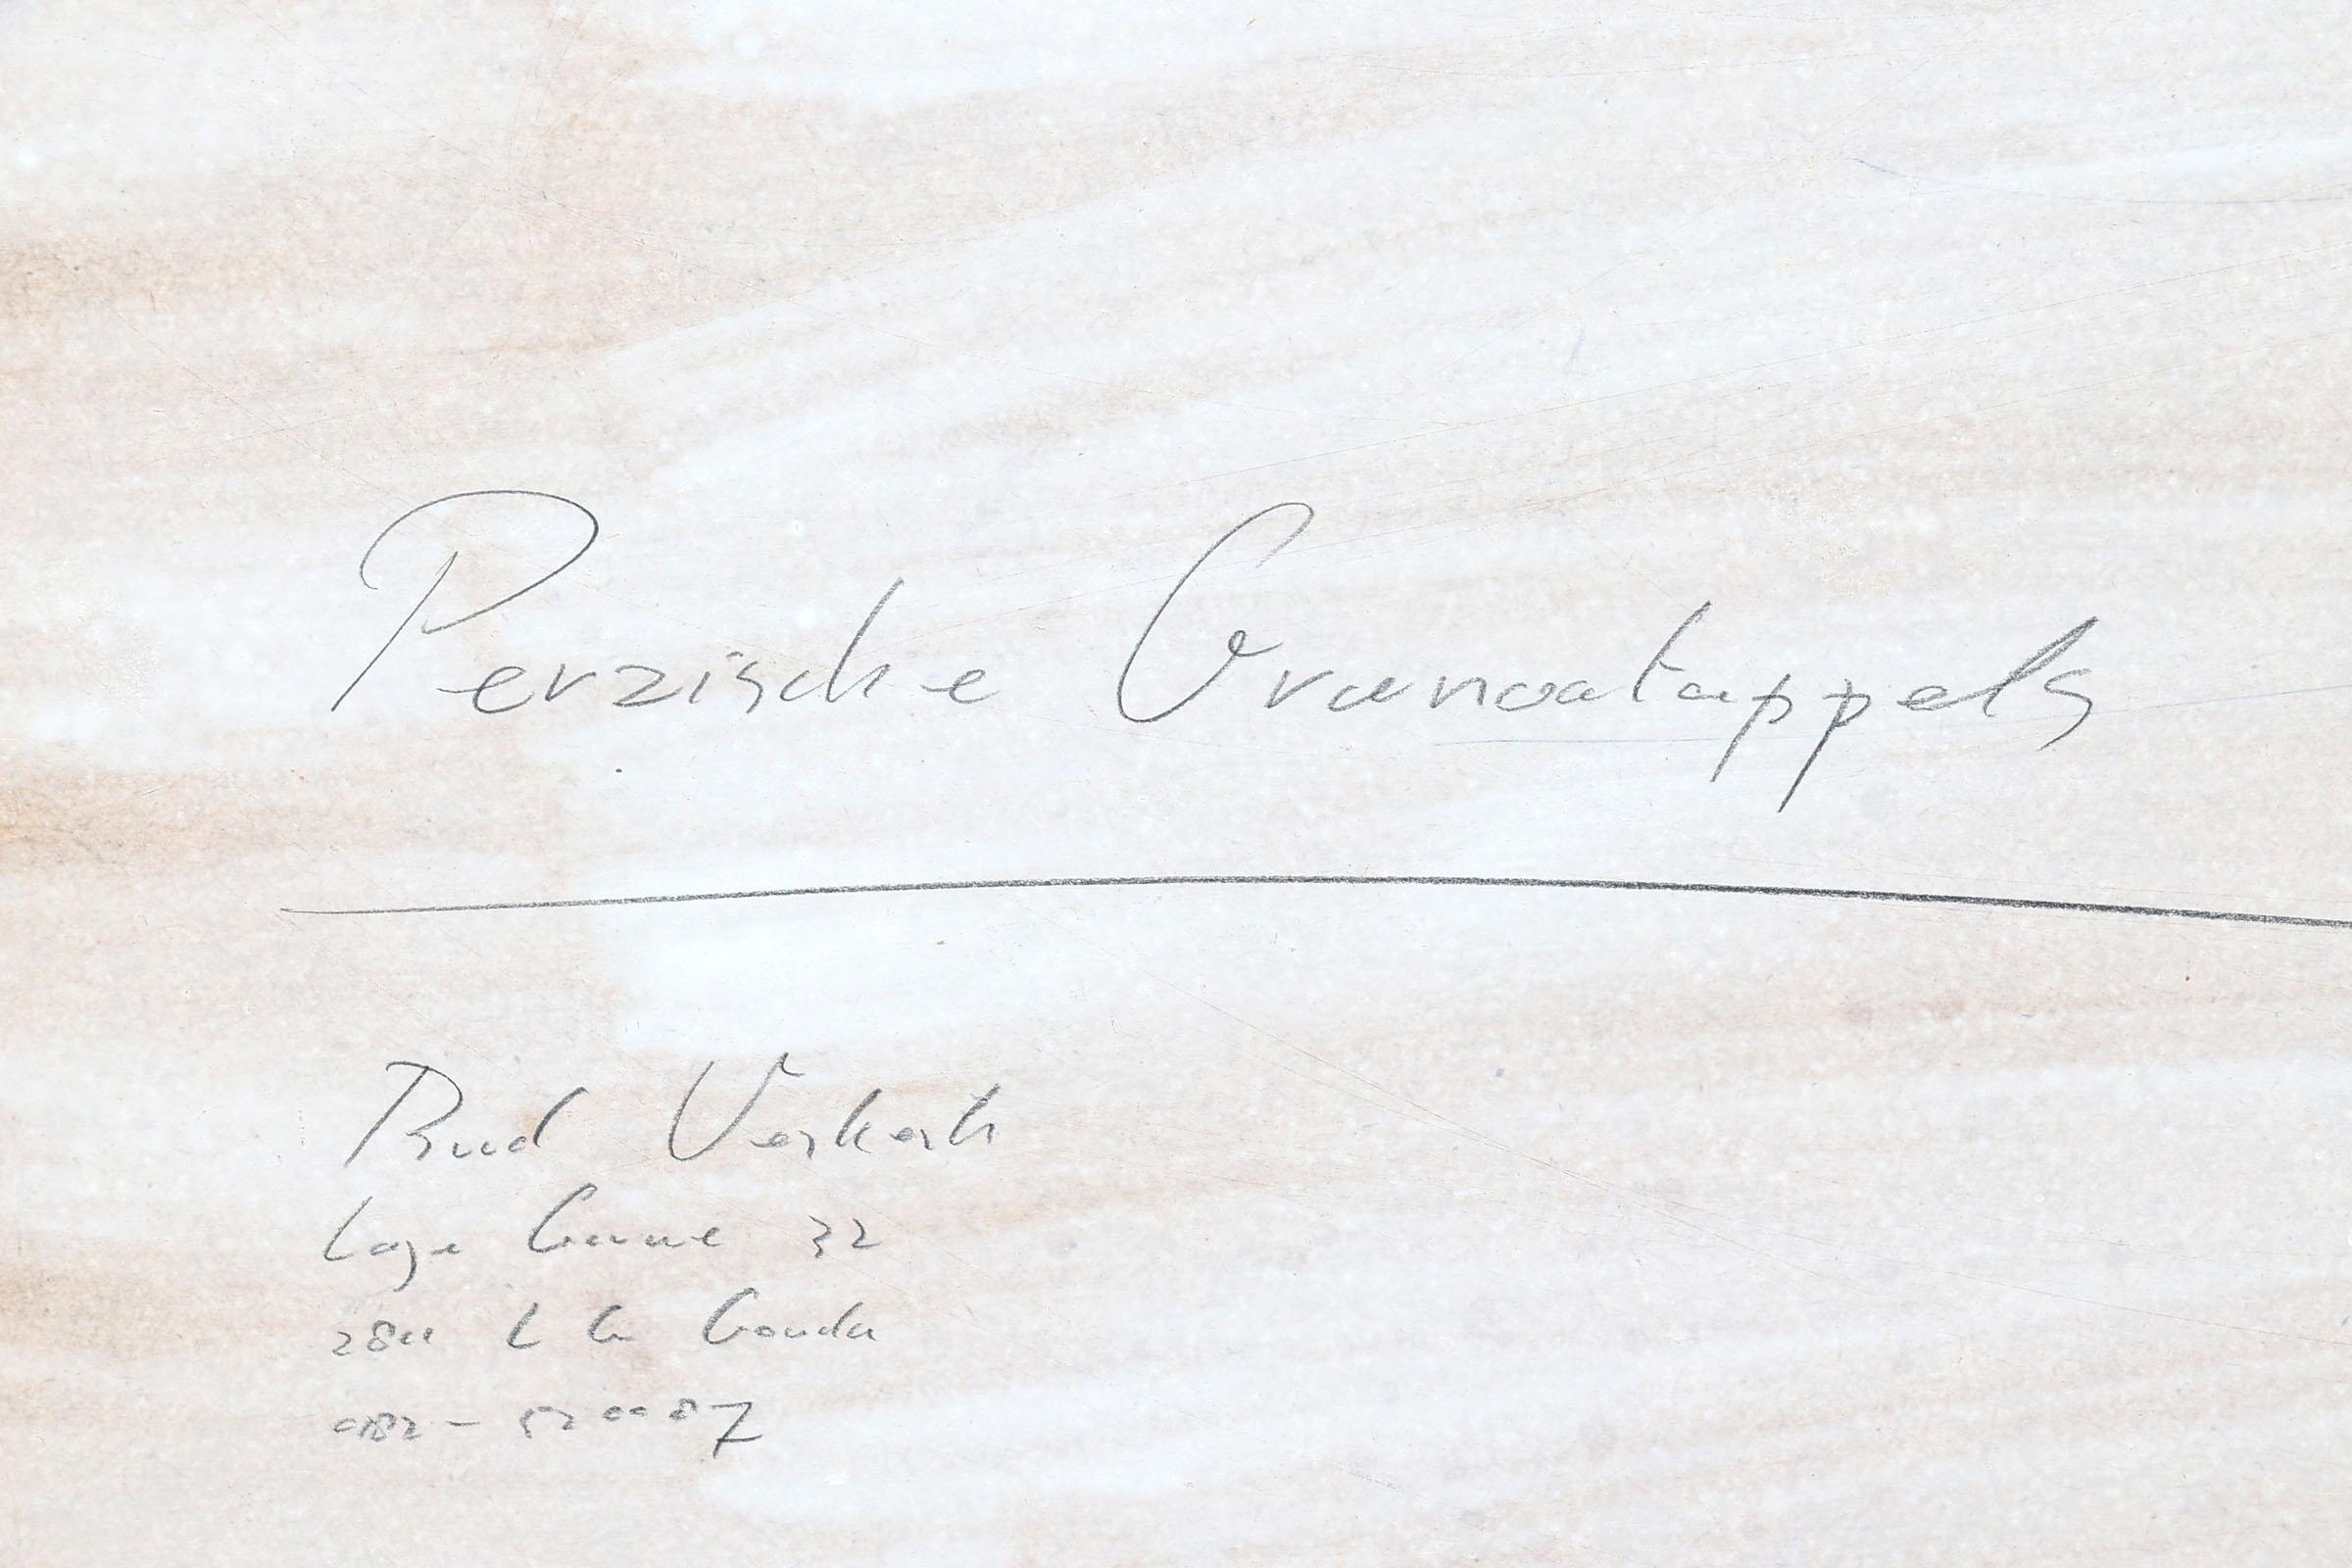 Perzische Granaatappels
Ruud Verkerk
Lage Gouwe 32
2801 LG Gouda
0182 - 520087